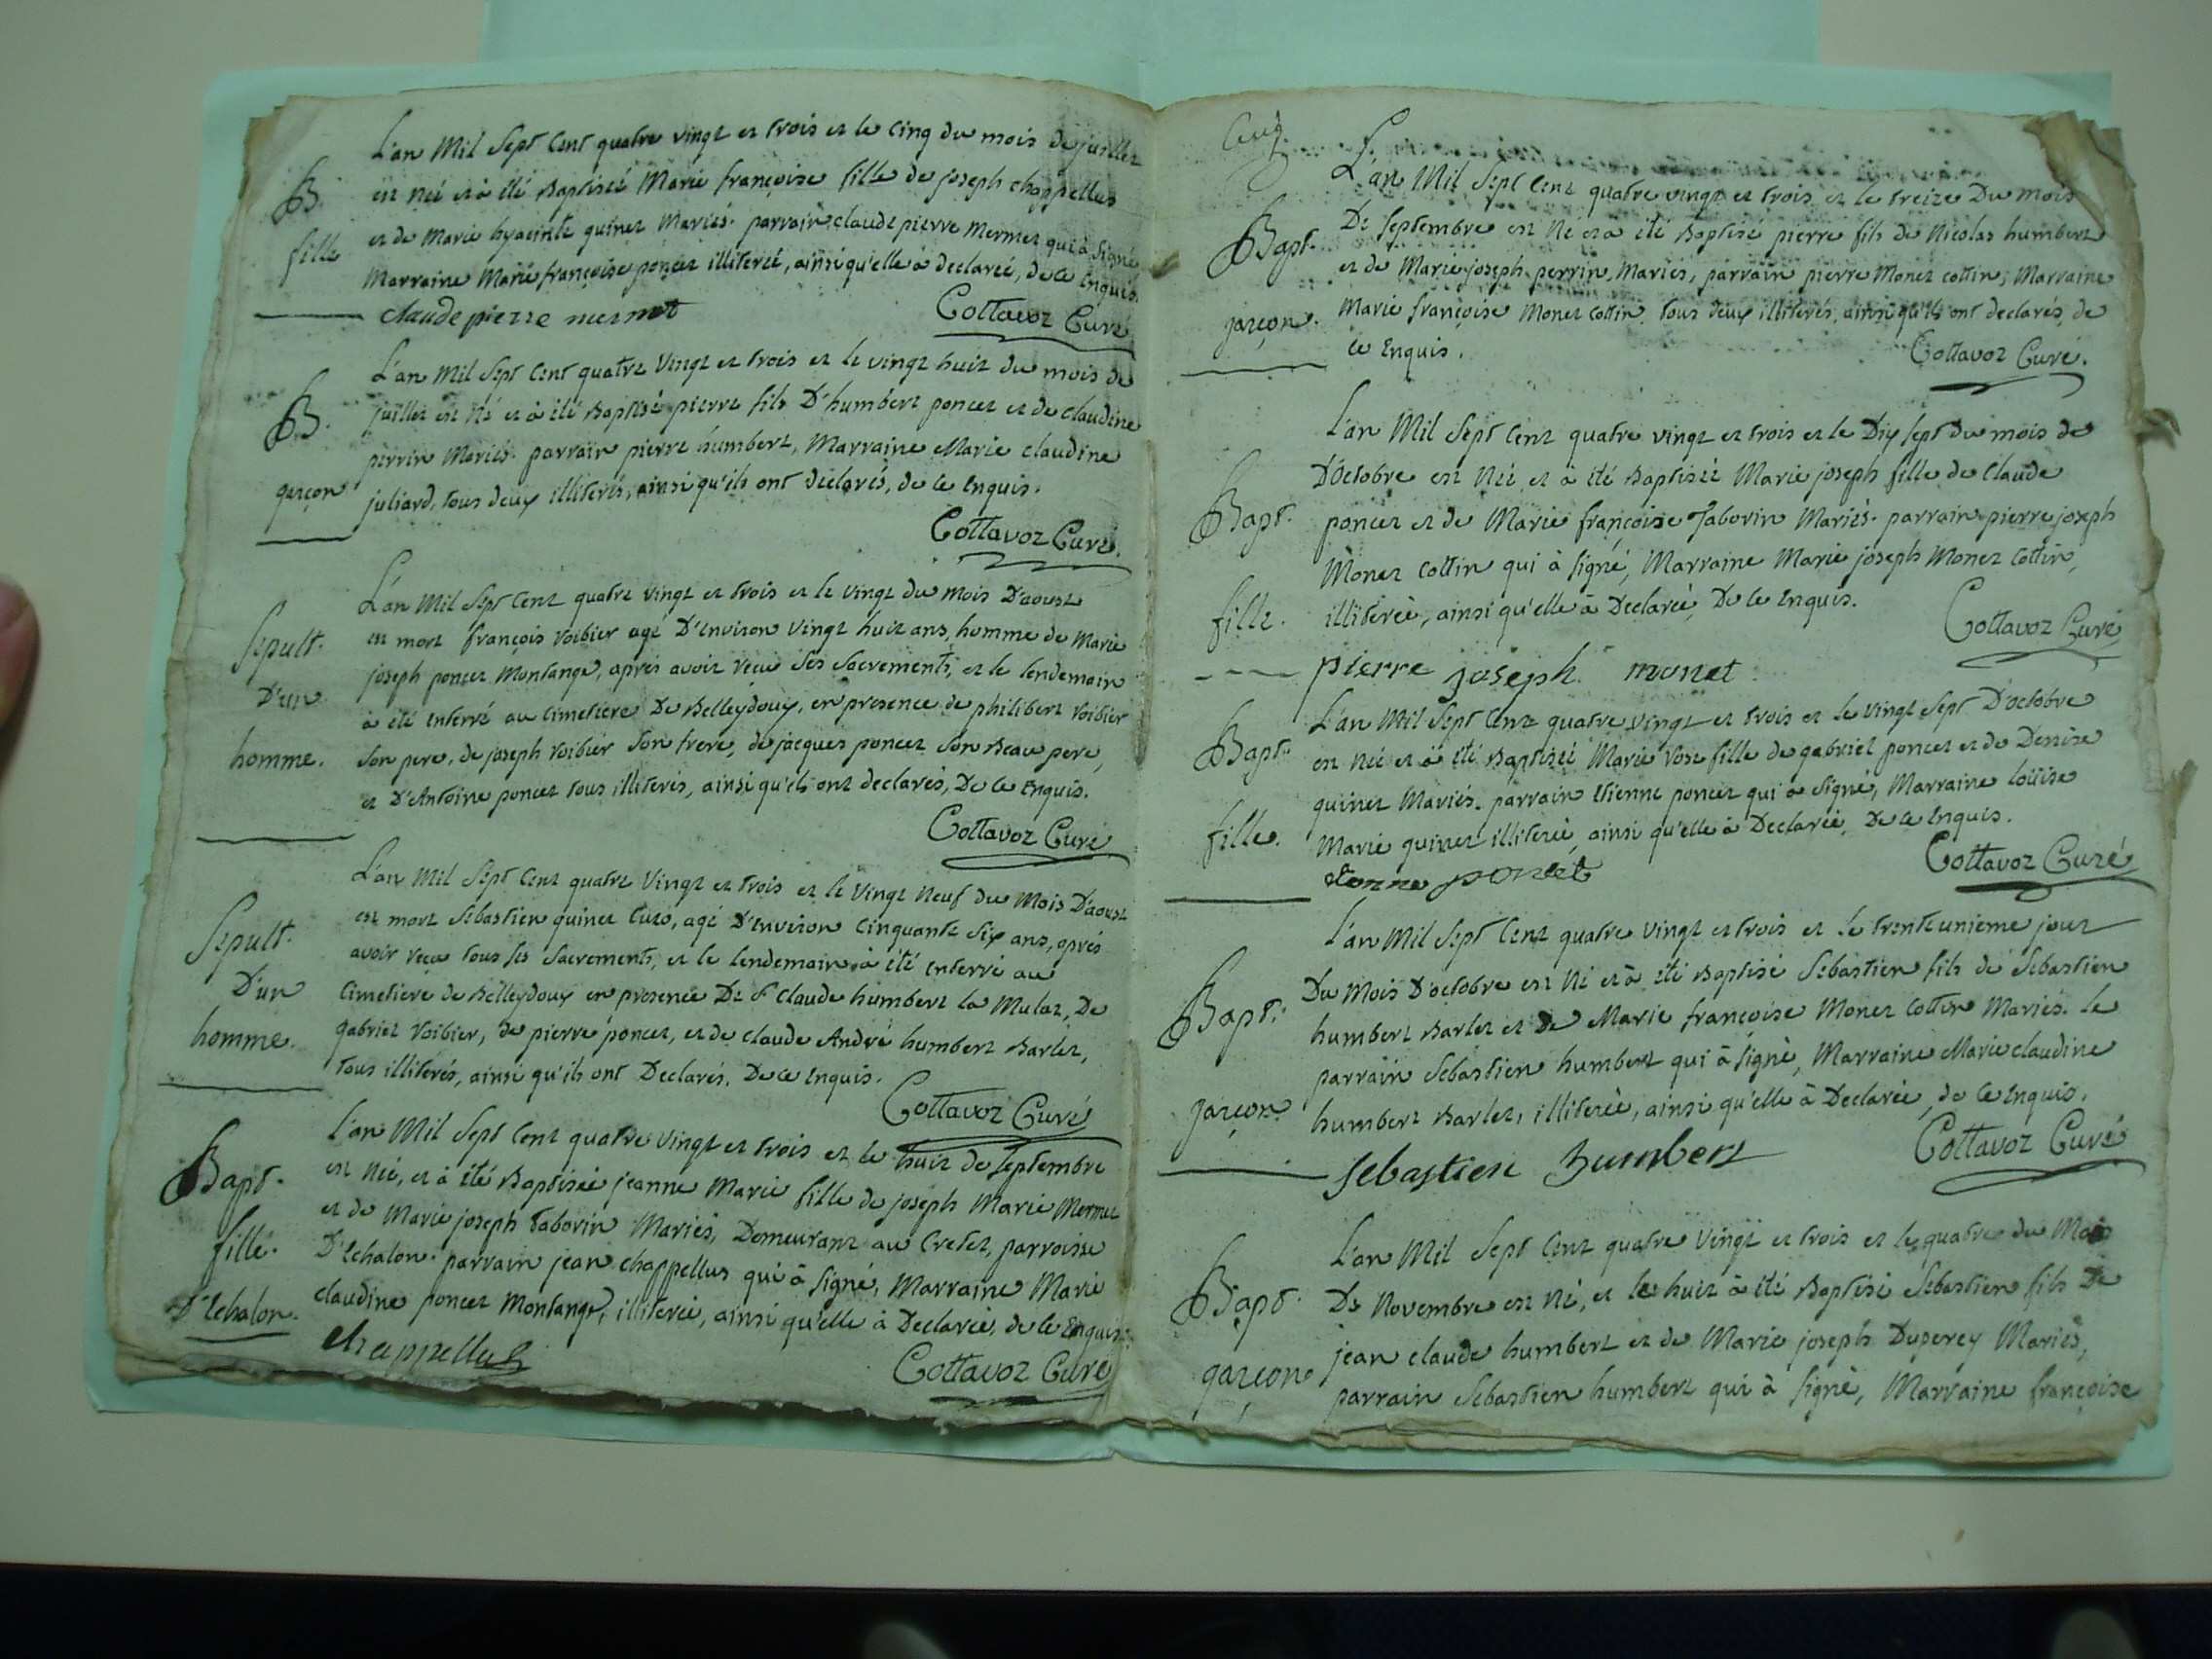 L'an Mil Sept Cent quatre vingt et trois et le Cinq du mois de juillet
B. est née et à été Baptisée Marie françoise fille de joseph chappellus
et de Marie hyacinte quinet Mariés. parrain claude pierre Mermet qui à signé
fille
Marraine Marie françoise poncet illiterée, ainsi qu'elle à declarée, de ce Enquis.
claude pierre mermet Cottavoz Curé
L'an Mil Sept Cent quatre Vingt et trois et le vingt huit du mois de
juillet est né et à été Baptisé pierre fils D'humbert poncet et de claudine
B.
perrin Mariés. parrain pierre humbert, Marraine Marie claudine
garçon juliard, tous deux illiterés, ainsi qu'ils ont déclarés, de ce Enquis.
Cottavoz Curé.
L'an Mil Sept Cent quatre vingt et trois et le vingt du mois D'aoust
est mort françois Voibier agé D'environ vingt huit ans, homme de Marie
Sepult.
joseph poncet Montange, aprés avoir reçue ses Sacrements, et le lendemain
D'un
à été enterré au Cimetiere De Belleydoux, en presence de philibert Voibier
homme. son pere, de joseph Voibier son frere, de jacques poncet son Beau pere,
et D'Antoine poncet tous illiterés, ainsi qu'ils ont declarés, De ce Enquis.
Cottavoz Curé
L'an Mil Sept Cent quatre Vingt et trois et le Vingt Neuf du Mois D'aoust
est mort Sebastien quinet Curo, agé D'environ Cinquante Six ans, aprés
Sepult.
avoir reçue tous ses Sacrements, et le lendemain à été enterré au
D'un
Cimetiere de Belleydoux en presence De Sr Claude humbert la Mulaz, De
homme. Gabriel Voibier, de pierre poncet, et de claude André humbert Barlet,
tous illiterés, ainsi qu'ils ont Declarés. De ce Enquis.
Cottavoz Curé
L'an Mil Sept Cent quatre Vingt et trois et le huit de septembre
Bapt. est née, et à été Baptisée jeanne Marie fille de joseph Marie Mermet
et de Marie joseph taborin Mariés, Demeurant au Cretet, parroisse
fille.
D'Echalon. parrain jean chappellus qui à signé, Marraine Marie
D'Echalon. claudine poncet Montange, illiterée, ainsi qu'elle à Declarée, de ce Enquis.
chappellus
Cottavoz Curé
L'an Mil Sept Cent quatre vingt et trois et le treize Du mois
Bapt. De septembre est Né et à été Baptisé pierre fils de Nicolas humbert
et de Marie joseph perrin, Mariés, parrain pierre Monet cottin, Marraine
garçon. Marie françoise Monet cottin, tous deux illiterés, ainsi qu'ils ont declarés, de
ce Enquis.
Cottavoz Curé.
L'an Mil Sept Cent quatre vingt et trois et le Dix sept du mois de
D'Octobre est Née et à été Baptisée Marie joseph fille de Claude
Bapt. poncet et de Marie françoise Taborin Mariés. parrain pierre joseph
Monet cottin qui à signé, Marraine Marie joseph Monet Cottin,
fille. illiterée, ainsi qu'elle à Declarée, De ce Enquis.
Cottavoz Curé
pierre joseph monet
L'an Mil Sept Cent quatre vingt et trois et le vingt sept D'octobre
Bapt. est née et à été Baptisée Marie Rose fille de gabriel poncet et de Denise
quinet Mariés. parrain Etienne poncet qui à signé, Marraine loüise
fille. Marie quinet illiterée, ainsi qu'elle à Declarée, De ce Enquis.
etienne poncet Cottavoz Curé
L'an Mil Sept Cent quatre vingt et trois et le trente unieme jour
Du Mois D'octobre est Né et à été Baptisé Sebastien fils de Sebastien
Bapt. humbert Barlet et De Marie françoise Monet Cottin Mariés. le
parrain Sebastien humbert qui à signé, Marraine Marie claudine
garçon humbert Barlet, illiterée, ainsi qu'elle à Declarée, de ce Enquis.
Sebastien humbert Cottavoz Curé
L'an Mil Sept Cent quatre Vingt et trois et le quatre du Mois
Bapt. De Novembre est Né, et le huit à été Baptisé Sebastien fils De
jean claude humbert et de Marie joseph Duperey Mariés,
garçon parrain Sebastien humbert qui à signé, Marraine françoise